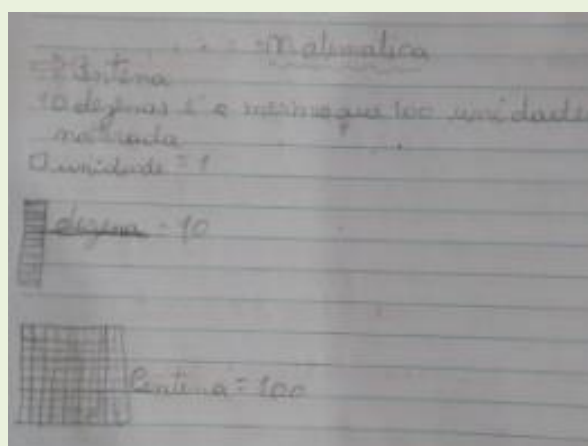 Matimatica
=> Centena
10 dezenas é o mesmo que 100 unidade
unidade = 1
dezena = 10
Centena = 100